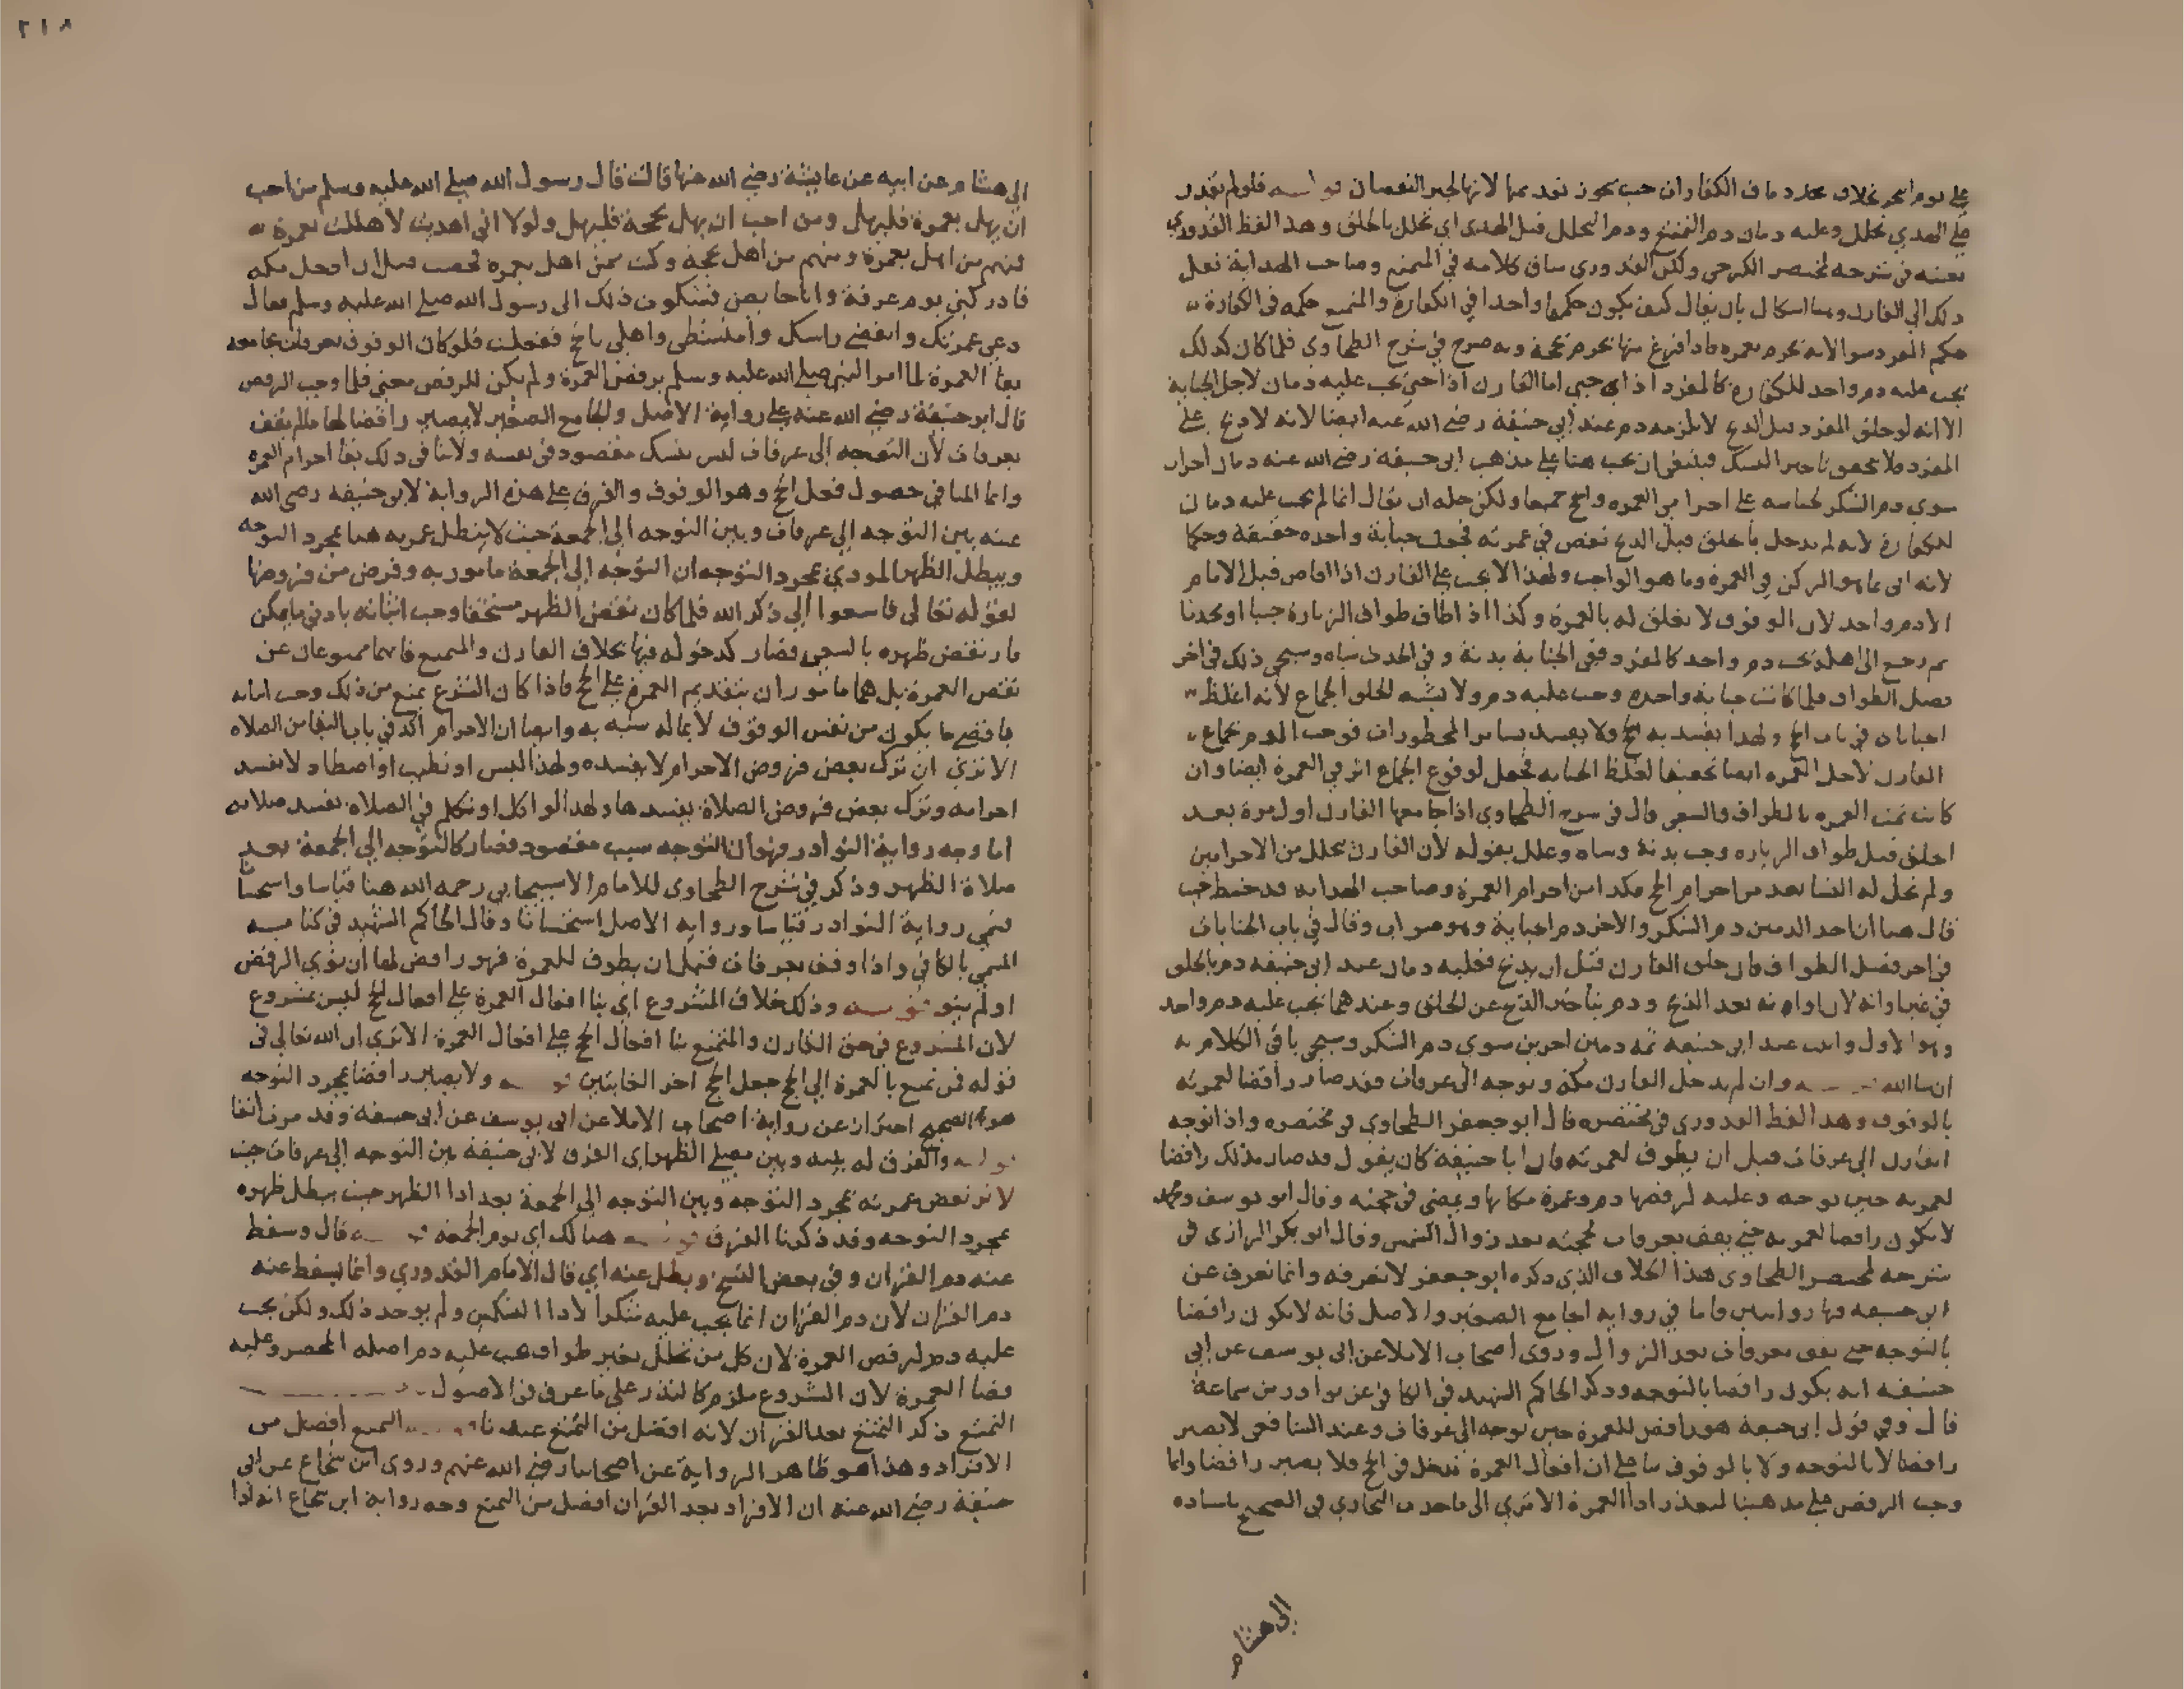 على يوم النحر بخلاف دما الكفارات حيث يجوز تقديمها لانها لجبر النقصان قوله فلو لم يقدر
على الهدي تحلل وعليه دمان دم التمتع ودم التحلل قبل الهدي اي تحلل بالحلق وهذا لفظ القدوري
بعينه في شرحه لمختصر الكرخي ولكن القدوري ساق كلامه في المتمتع وصاحب الهداية نقل
ذلك الى القارن وهنا اشكال بان يقال كيف يكون حكمهما واحدا في الكفارة والمتمتع حكمه في الكفارة
حكم المفرد سوا لانه يحرم بعمره فاذا فرغ منها يحرم بحجة وبه صرح في شرح الطحاوي فلما كان كذلك
يجب عليه دم واحد للكفارة كالمفرد اذا جنى اما القارن اذا جنى يجب عليه دمان لاجل الجناية
الا انه لو حلق المفرد قبل الذبح لا يلزمه دم عند ابي حنيفة رضي الله عنه ايضا لانه لا ذبح على
المفرد فلا يتحقق تاخير النسك فينبغي ان يجب هنا على مذهب ابي حنيفة رضي الله عنه دمان اخران
سوى دم الشكر لجنايته على احرامي العمره والحج جميعا ولكن حله ان يقال انما لم يجب عليه دمان
للكفارة لانه لم يدخل بالحلق قبل الذبح نقص في عمرته فجعلت جناية واحده حقيقة وحكما
لانه اتى بما هو الركن في العمرة وما هو الواجب ولهذا لا يجب على القارن اذا افاض قبل الامام
الا دم واحد لان الوقوف لا تعلق له بالعمرة وكذا اذا طاف طواف الزيارة جنبا او محدثا
ثم رجع الى اهله يجب دم واحد كالمفرد ففي الجنابة بدنة وفي الحدث شاه وسيجي ذلك في اخر
فصل الطواف فلما كانت جناية واحده وجب عليه دم ولا يشبه الحلق الجماع لانه اغلظ
الجنايات في باب الحج ولهذا يفسد به الحج ولا يفسد بسائر المحظورات فوجب الدم بجماع
القارن لاجل العمره ايضا تحقيقا لغلظ الجنايه فجعل لوقوع الجماع اثر في العمرة ايضا وان
كانت تمت العمره بالطواف والسعي قال في شرح الطحاوي اذا جامعها القارن اول مرة بعد
الحلق قبل طواف الزياره وجب بدنة وشاه وعلل بقوله لان القارن يتحلل من الاحرامين
ولم تحل له النسا بعد من احرام الحج فكذا من احرام العمرة وصاحب الهدايه قد خبط حيث
قال هنا ان احد الدمين دم الشكر والاخر دم الجناية وهو صواب وقال في باب الجنايات
في اخر فصل الطواف فان حلق القارن قبل ان يذبح فعليه دمان عند ابي حنيفه دم بالحلق
في غير اوانه لان اوانه بعد الذبح ودم بتاخير الذبح عن الحلق وعندهما يجب عليه دم واحد
وهو الاول واثبت عند ابي حنيفه ثمه دمين اخرين سوى دم الشكر وسيجي باقي الكلام
ان شا الله قوله وان لم يدخل القارن مكة وتوجه الى عرفات فقد صار رافضا لعمرته
بالوقوف وهذا لفظ القدوري في مختصره قال ابو جعفر الطحاوي في مختصره واذا توجه
القارن الى عرفات قبل ان يطوف لعمرته فان ابا حنيفة كان يقول قد صار بذلك رافضا
لعمرته حين توجه وعليه لرفضها دم وعمرة مكانها ويمضي في حجته وقال ابو يوسف ومحمد
لا يكون رافضا لعمرته حتى يقف بعرفات لحجته بعد زوال الشمس وقال ابو بكر الرازي في
شرحه لمختصر الطحاوي هذا الخلاف الذي ذكره ابو جعفر لا نعرفه وانما نعرف عن
ابي حنيفه فيها روايتين فاما في رواية الجامع الصغير والاصل فانه لا يكون رافضا
بالتوجه حتى يقف بعرفات بعد الزوال وروى اصحاب الاملا عن ابي يوسف عن ابي
حنيفه انه يكون رافضا بالتوجه وذكر الحاكم الشهيد في الكافي عن نوادر بن سماعة
قال وفي قول ابي حنيفة هو رافض للعمرة حين توجه الى عرفات وعند الشافعي لا يصير
رافضا لا بالتوجه ولا بالوقوف بنا على ان افعال العمرة تدخل في الحج فلا يصير رافضا وانما
وجب الرفض على مذهبنا لتعذر ادا العمرة الا ترى الى ما حدث البخاري في الصحيح باسناده
الى هشام
٢١٨
الى هشام عن ابيه عن عايشة رضي الله عنها قالت قال رسول الله صلى الله عليه وسلم من احب
ان يهل بعمرة فليهل ومن احب ان يهل بحجة فليهل ولولا اني اهديت لاهللت بعمرة
فمنهم من اهل بعمرة ومنهم من اهل بحجة وكنت ممن اهل بعمره فحضت قبل ان ادخل مكه
فادركني يوم عرفة وانا حايض فشكوت ذلك الى رسول الله صلى الله عليه وسلم فقال
دعي عمرتك وانفضي راسك وامتشطي واهلي بالحج ففعلت فلو كان الوقوف بعرفات يجامعه
بقا العمرة لما امر النبي صلى الله عليه وسلم برفض العمرة ولم يكن للرفض معنى فلما وجب الرفض
قال ابو حنيفة رضي الله عنه على رواية الاصل والجامع الصغير لا يصير رافضا لها ما لم يقف
بعرفات لان التوجه الى عرفات ليس بنسك مقصود في نفسه ولا ينافي ذلك بقا احرام العمرة
وانما المنافي حصول فعل الحج وهو الوقوف والفرق على هذه الرواية لابي حنيفه رضى الله
عنه بين التوجه الى عرفات وبين التوجه الى الجمعة حيث لا يبطل عمرته هنا بمجرد التوجه
ويبطل الظهر المودي بمجرد التوجه ان التوجه الى الجمعة مامور به وفرض من فروضها
لقوله تعالى فاسعوا الى ذكر الله فلما كان نقض الظهر مستحقا وجب اثباته بادنى ما يمكن
فارتفض ظهره بالسعي فصار كدخوله فيها بخلاف القارن والمتمتع فانهما ممنوعان عن
نقض العمرة بل هما ماموران بتقديم العمرة على الحج فاذا كان الشرع يمنع من ذلك وجب اثباته
باقصى ما يكون من نفس الوقوف لا بما له شبه به وايضا ان الاحرام اكد في باب البقا من الصلاه
الا ترى ان ترك بعض فروض الاحرام لا يفسده ولهذا لو لبس او تطيب او اصطاد لا يفسد
احرامه وترك بعض فروض الصلاة يفسدها ولهذا لو اكل او تكلم في الصلاه تفسد صلاته
اما وجه رواية النوادر فهو ان التوجه سبب مقصود فصار كالتوجه الى الجمعة بعد
صلاة الظهر وذكر في شرح الطحاوي للامام الاسبيجابي رحمه الله هنا قياسا واستحسانا
فسمي رواية النوادر قياسا ورواية الاصل استحسانا وقال الحاكم الشهيد في كتابه
المسمى بالكافي واذا وقف بعرفات قبل ان يطوف للعمرة فهو رافض لها ان نوى الرفض
او لم ينو قوله وذلك خلاف المشروع اي بنا افعال العمرة على افعال الحج ليس بمشروع
لان المشروع في حق القارن والمتمتع بنا افعال الحج على افعال العمرة الا ترى ان الله تعالى في
قوله فمن تمتع بالعمرة الى الحج جعل الحج اخر الغايتين قوله ولا يصير رافضا بمجرد التوجه
هو الصحيح احتراز عن رواية اصحاب الاملا عن ابي يوسف عن ابي حنيفة وقد مر انفا
قوله والفرق له بينه وبين مصلى الظهر اي الفرق لابي حنيفة بين التوجه الى عرفات حيث
لا ترتفض عمرته بمجرد التوجه وبين التوجه الى الجمعة بعد ادا الظهر حيث يبطل ظهره
بمجرد التوجه وقد ذكرنا الفرق قوله هنالك اي يوم الجمعة قوله قال وسقط
عنه دم القران وفي بعض النسخ وبطل عنه اي قال الامام القدوري وانما يسقط عنه
دم القران لان دم القران انما يجب عليه شكرا لادا النسكين ولم يوجد ذلك ولكن يجب
عليه دم لرفض العمرة لان كل من تحلل بغير طواف يجب عليه دم اصله المحصر وعليه
قضا العمرة لان الشروع ملزم كالنذر على ما عرف في الاصول
التمتع ذكر التمتع بعد القران لانه افضل من التمتع عندنا قوله التمتع افضل من
الافراد وهذا هو ظاهر الرواية عن اصحابنا رضي الله عنهم وروى ابن شجاع عن ابي
حنيفة رضي الله عنه ان الافراد بعد القران افضل من التمتع وجه رواية ابن شجاع انه اذا